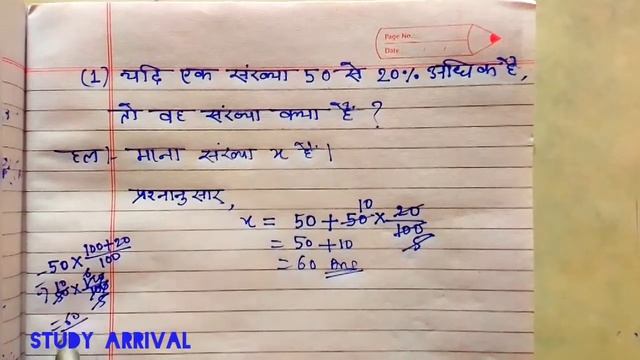 Page No.
Date
(1) यदि एक संख्या 50 से 20% अधिक है,
तो वह संख्या क्या है ?
हल:- माना संख्या x है।
प्रश्नानुसार,
x = 50 + 50 10 × 20/100 5
= 50 + 10
= 60 Ans
50 × 100+20/100
= 60
STUDY ARRIVAL